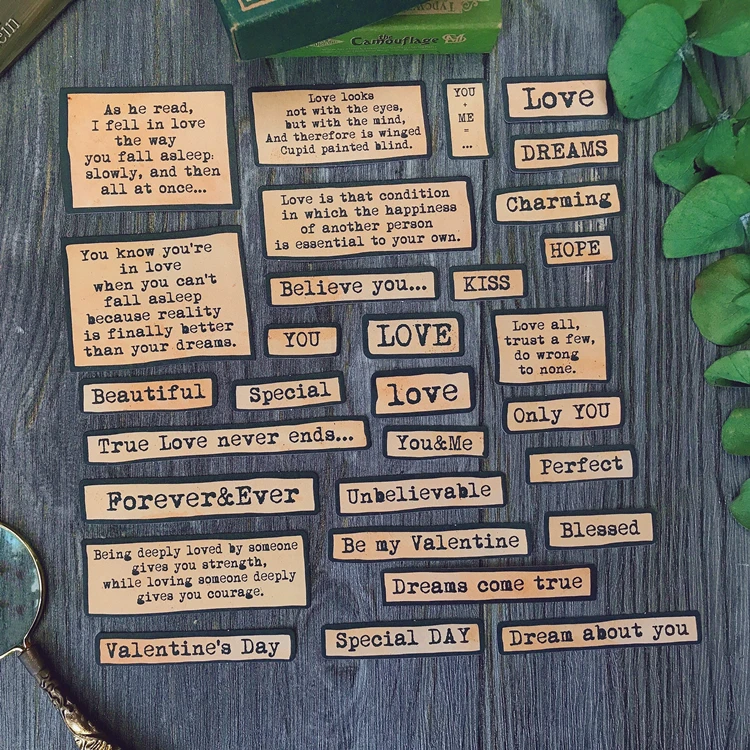 ein
the
Camouflage
As he read,
I fell in love
the way
you fall asleep:
slowly, and then
all at once...
Love looks
not with the eyes,
but with the mind,
And therefore is winged
Cupid painted blind.
YOU
+
ME
=
...
Love
DREAMS
Love is that condition
in which the happiness
of another person
is essential to your own.
Charming
HOPE
You know you're
in love
when you can't
fall asleep
because reality
is finally better
than your dreams.
Believe you...
KISS
YOU
LOVE
Love all,
trust a few,
do wrong
to none.
Beautiful
Special
love
Only YOU
True Love never ends...
You&Me
Perfect
Forever&Ever
Unbelievable
Blessed
Being deeply loved by someone
gives you strength,
while loving someone deeply
gives you courage.
Be my Valentine
Dreams come true
Valentine's Day
Special DAY
Dream about you